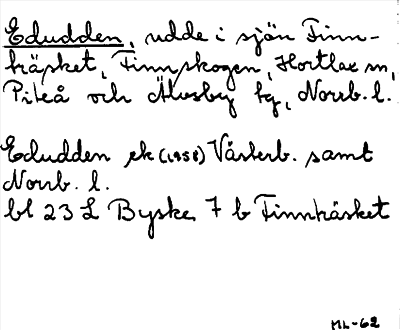 Edudden, udde i sjön Finn-
träsket, Finnskogen, Hortlax sn,
Piteå och Älvsby kg, Norrb. l.
Edudden ek (1958) Västerb. samt
Norrb. l.
bl 23 L Byske 7 b Finnträsket
ML-62